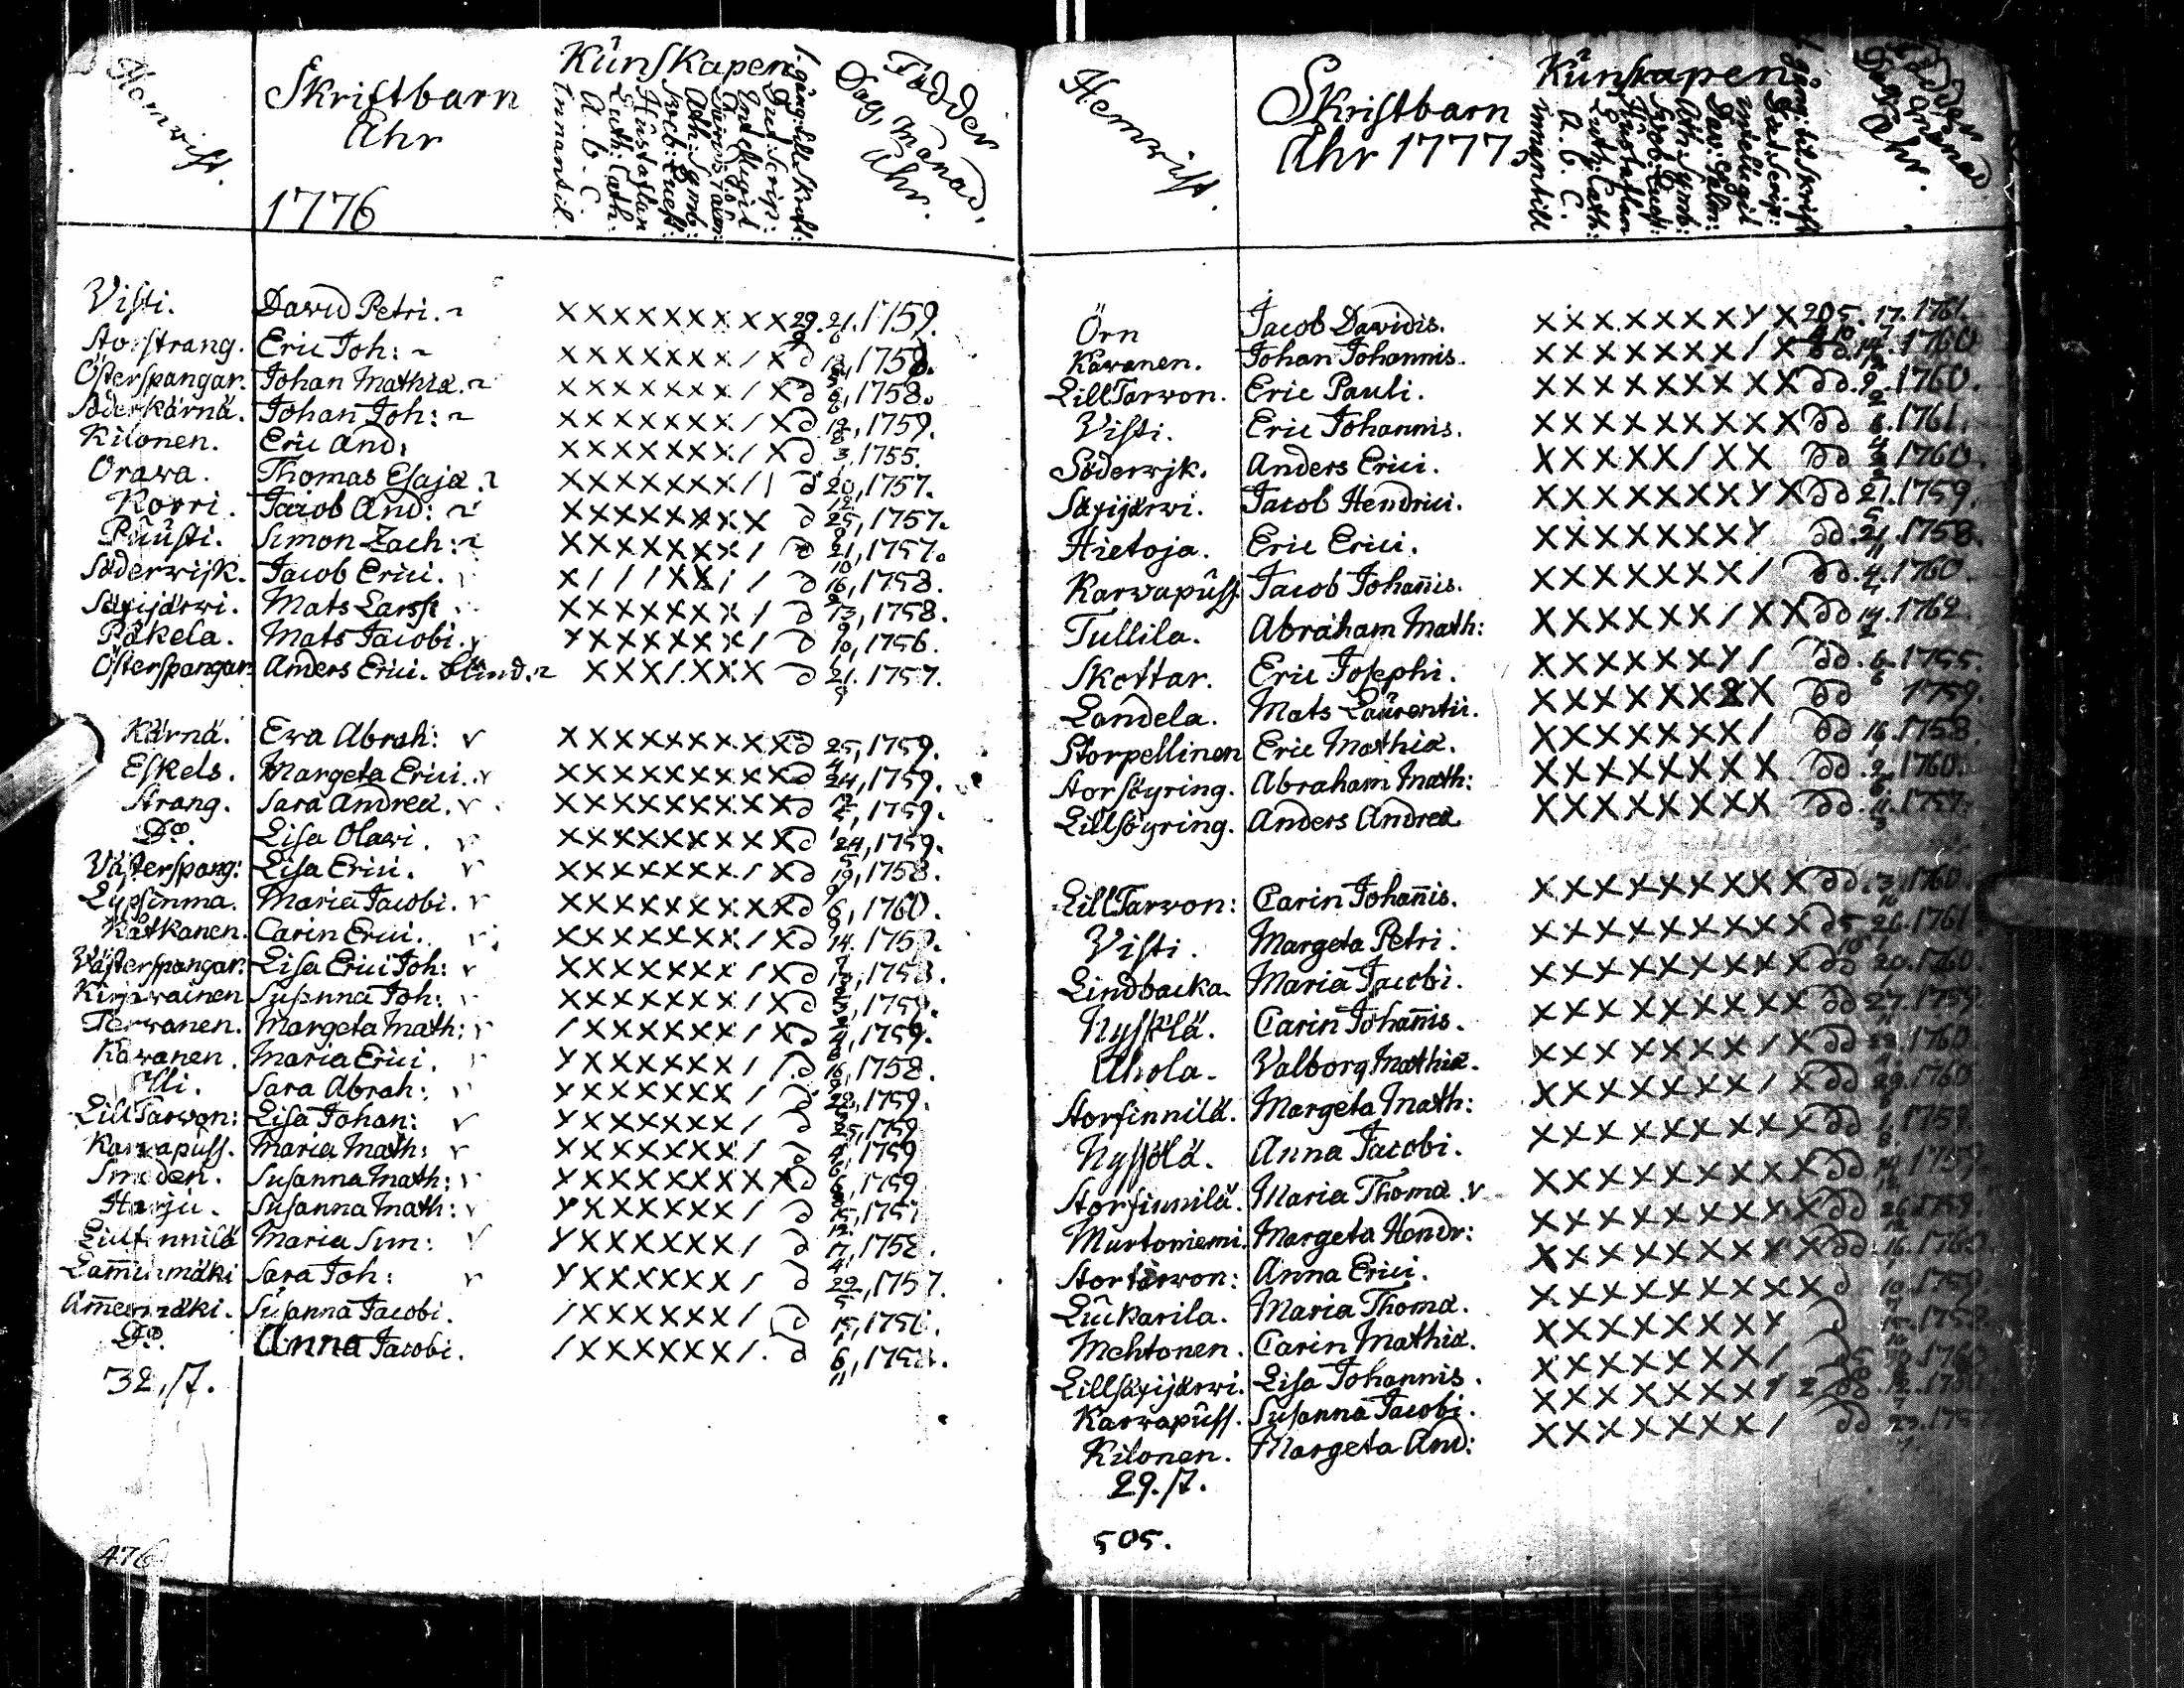 Hemvist.
Skriftbarn
Åhr
1776
Kunskapen
Innantil.
A. B. C.
Luth: Cath:
Hustaflan
Ath: Symb:
Född
Dag, Månad,
Åhr.
Visti. David Petri. XXXXXXXXX 29. 21. 1759.
Storstrang. Eric Joh: XXXXXXX/X d 1758.
Österspangar. Johan Mathiæ. XXXXXXX/X d 6, 1758.
Söderkärnä. Johan Joh: XXXXXXX/X d 1759.
Kilonen. Eric And: XXXXXXX/X d 3, 1755.
Orawa. Thomas Esajæ. XXXXXXX// d 20, 1757.
Korri. Jacob And: XXXXXXXX d 25, 1757.
Puusti. Simon Zach: XXXXXXX/ d 21, 1757.
Söderwijk. Jacob Erici. X///XX// d 16, 1758.
Säxijärwi. Mats Larss. XXXXXXX/ d 13, 1758.
Påkela. Mats Jacobi. XXXXXXX/ d 10, 1756.
Österspangar Anders Erici. blind. XXX/XXX d 21. 1757.
Kärnä. Ewa Abrah: XXXXXXXXX d 25, 1759.
Eskels. Margeta Erici. XXXXXXXXX d 24, 1759.
Strang. Sara Andreæ. XXXXXXXXX d 5, 1759.
Do. Lisa Olavi. XXXXXXXXX d 24, 1759.
Västerspang: Lisa Erici. XXXXXXX/X d 19, 1758.
Lypsinma. Maria Jacobi. XXXXXXXXX d 6, 1760.
Kätkanen. Carin Erici. XXXXXXX/X d 14. 1759.
Västerspangar. Lisa Erici Joh: XXXXXXX/X d 1758.
Kirjavainen Susanna Joh: XXXXXXX/X d 1759.
Terwanen. Margeta Math: /XXXXXX/X d 1759.
Kavanen. Maria Erici. XXXXXXX// d 16, 1758.
Illi. Sara Abrah: XXXXXXX/ d 1759.
Lill Tarvon: Lisa Johan: XXXXXXX/ d 25, 1759
Karvapuss. Maria Math: XXXXXXX/ d 1759
Smeden. Susanna Math: XXXXXXXXX d 6, 1759
Harju. Susanna Math: XXXXXXX/ d 15, 1757
Lillfinnilä Maria Sim: XXXXXXX/ d 17, 1758.
Lam̄inmäki Sara Joh: XXXXXXX/ d 22, 1757.
Am̄esmäki. Susanna Jacobi. /XXXXXX/ d 15, 1756.
Do. Anna Jacobi. /XXXXXX/ d 6, 1758.
32, st.
476
Hemvist.
Skriftbarn
Åhr 1777
Kunskapen
Innantill
A. B. C.
Luth: Cath:
Hustaflan
Ath: Symb:
Dav: Psalm:
Åhr.
Örn Jacob Davidis. XXXXXXXXX 205. 17. 1761.
Kavanen. Johan Johannis. XXXXXXX/X dd. 14. 1760
Lill Tarvon. Eric Pauli. XXXXXXXXX dd. 9. 1760.
Visti. Eric Johannis. XXXXXXXXX dd 6. 1761.
Söderwjk. Anders Erici. XXXXX/XX dd 1760.
Säxijärwi. Jacob Hendrici. XXXXXXXXX dd 21. 1759.
Hietoja. Eric Erici. XXXXXXXX dd. 21. 1758.
Karvapuss Jacob Johan̄is. XXXXXXX/ dd. 4. 1760.
Tullila. Abraham Math: XXXXXXX/XX dd 14. 1762.
Skottar. Eric Josephi. XXXXXXX/ dd. 6. 1755.
Landela. Mats Laurentii. XXXXXXXX dd 1759.
Storpellinen Eric Mathiæ. XXXXXXX/ dd 16. 1758.
Storsöyring. Abraham Math: XXXXXXXX dd. 2. 1760.
Lillsöyring. Anders Andreæ XXXXXXXX dd. 11. 1757.
Lill Tarvon: Carin Johan̄is. XXXXXXXXX dd. 3. 1760.
Visti. Margeta Petri. XXXXXXXXX d 5 26. 1761.
Lindbacka. Maria Jacobi. XXXXXXXXX dd 20. 1760.
Nyssölä. Carin Johan̄is. XXXXXXXXX dd 27. 1759.
Ahola. Valborg Mathiæ. XXXXXXX/X dd 1760.
Storfinnilä. Margeta Math: XXXXXXX/X dd 29. 1760
Nyssölä. Anna Jacobi. XXXXXXXXX dd 1. 1759.
Storfinnilä. Maria Thomæ. XXXXXXXXX dd 14 1759.
Murtoniemi. Margeta Hendr: XXXXXXXXX dd 26. 1759.
Stortarvon: Anna Erici. XXXXXXXXX dd. 16. 1760.
Luukarila. Maria Thomæ. XXXXXXXXX d 10. 1759.
Mehtonen. Carin Mathiæ. XXXXXXXX d 15. 1758.
Lillsäxijärwi. Lisa Johannis. XXXXXXX/ 1760
Karvapuss. Susanna Jacobi. XXXXXXXX dd
Kilonen. Margeta And: XXXXXXX/ dd 23. 1757
29. st.
505.